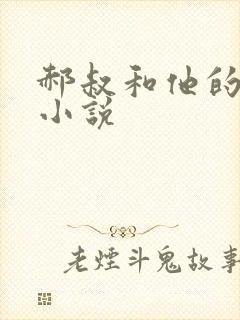 郝叔和他的
小说
老煙斗鬼故事